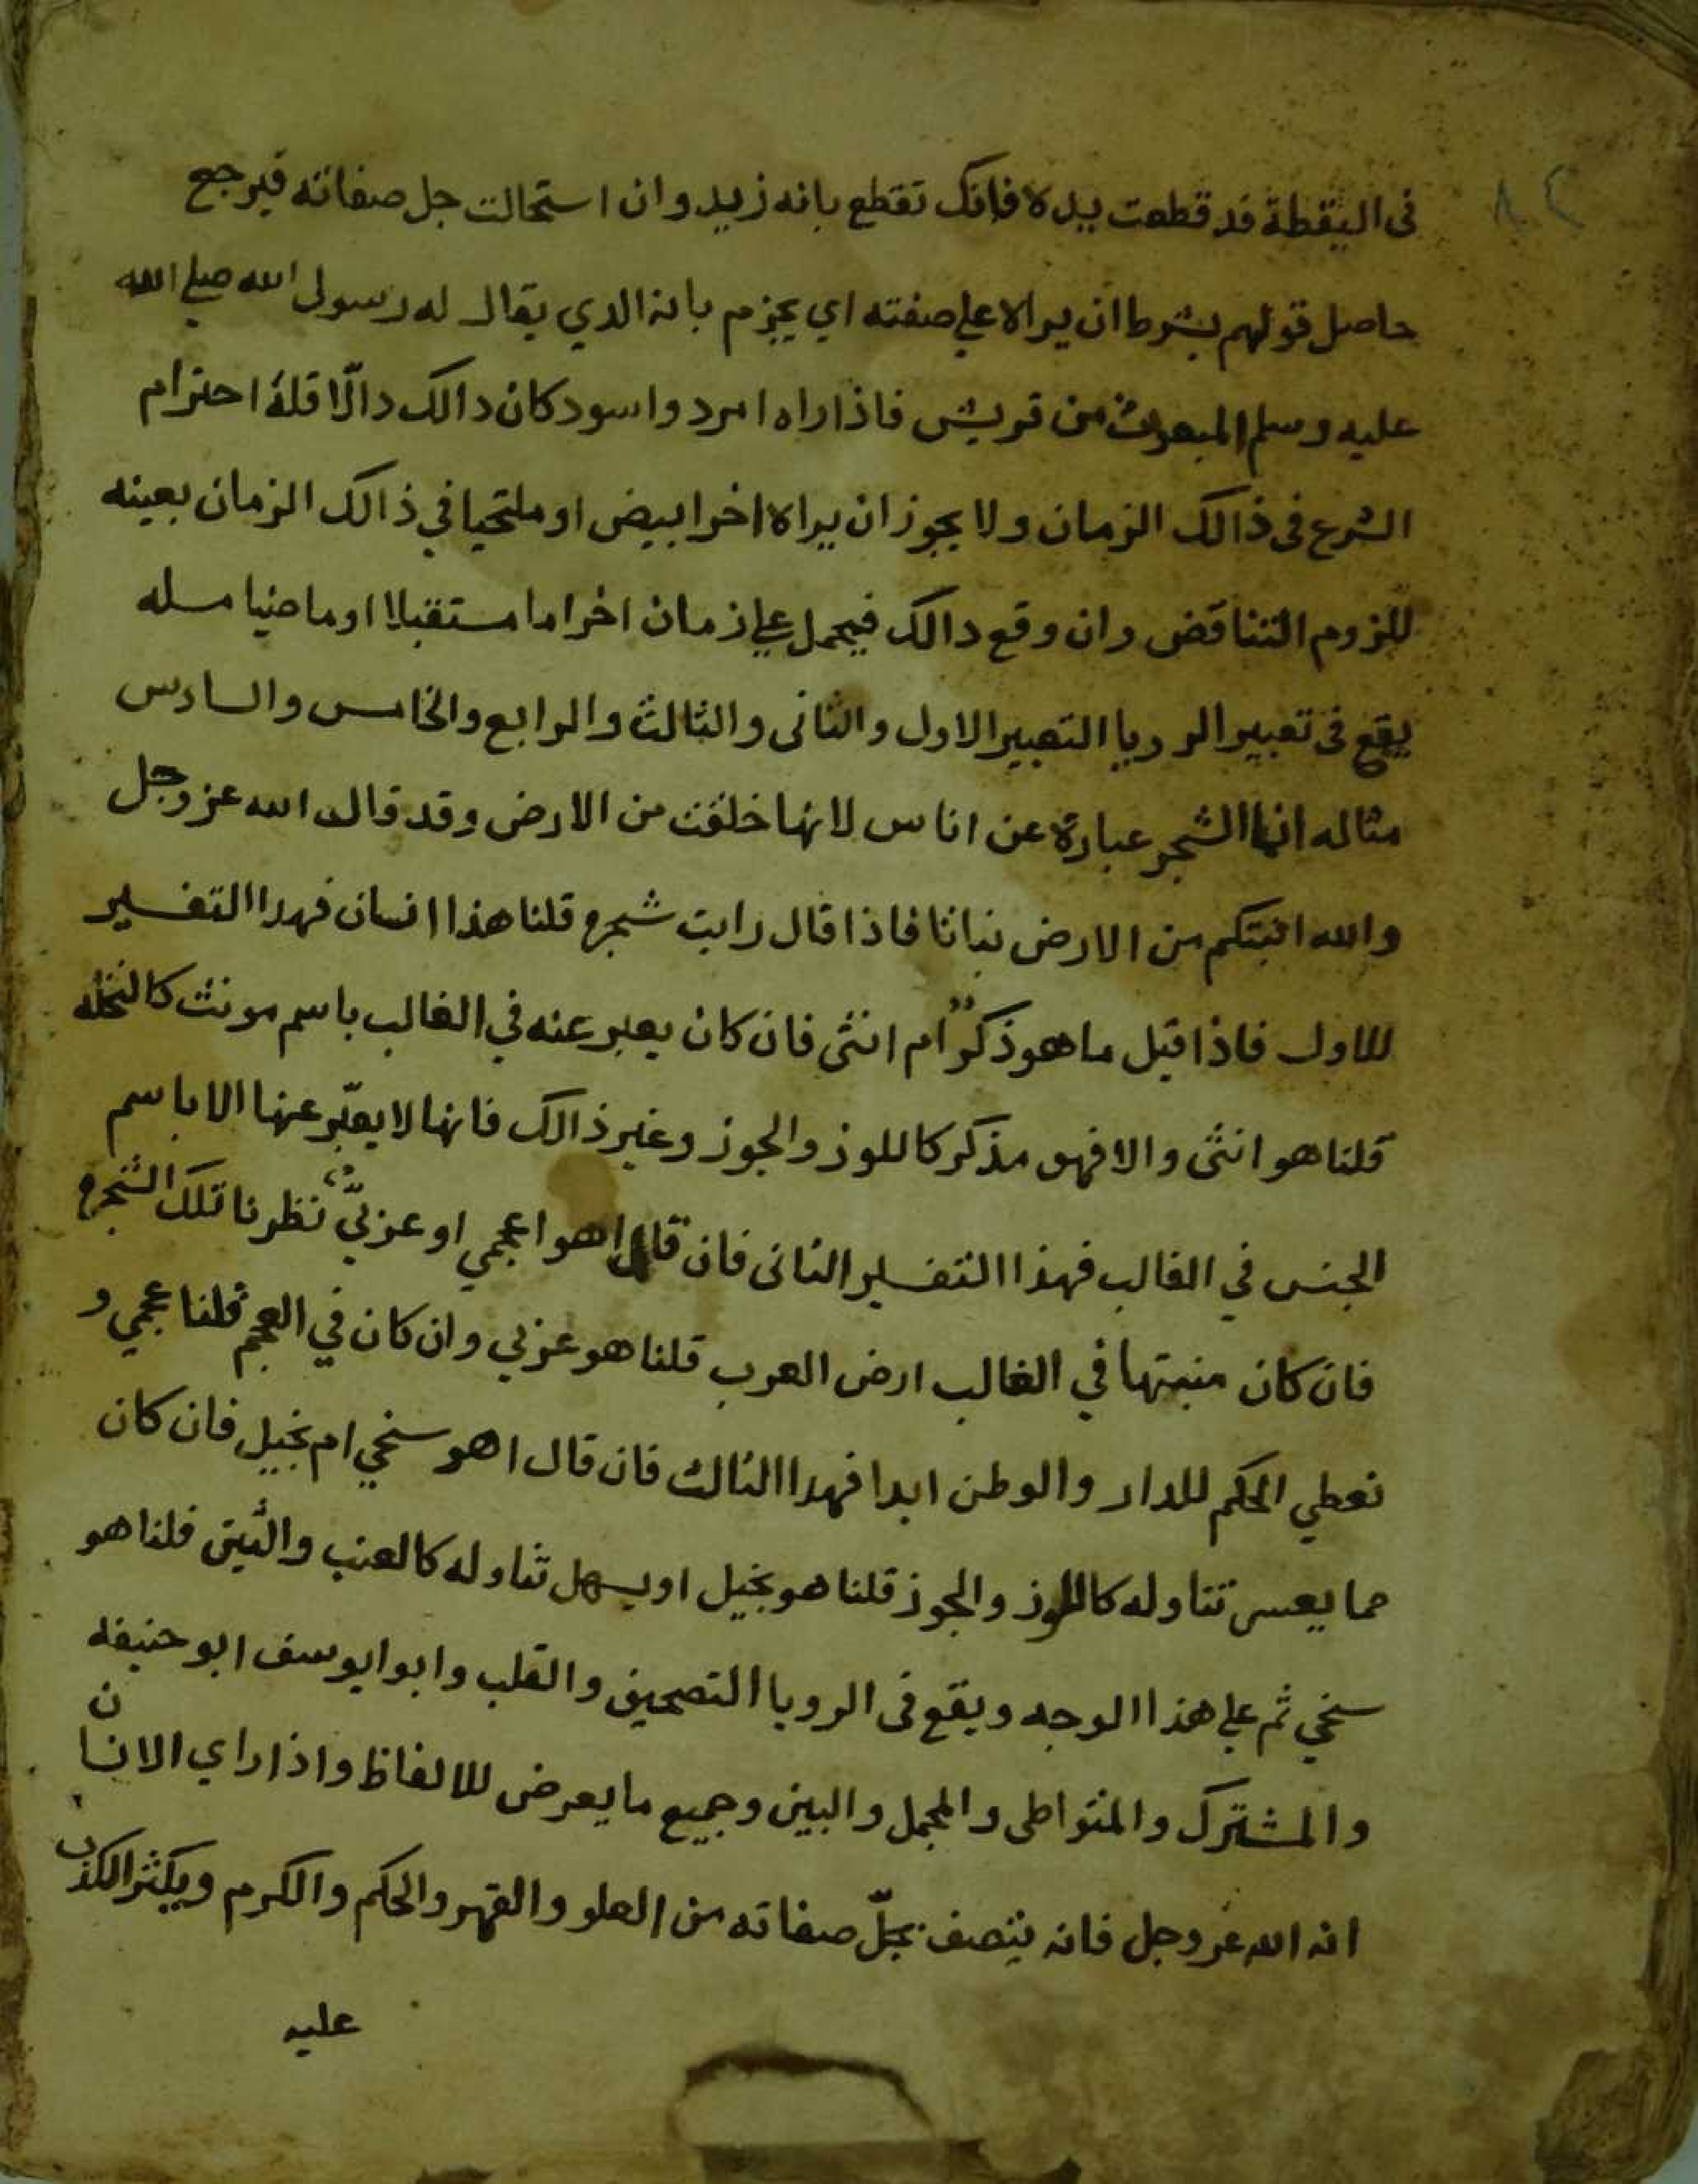 ٨٢
فى اليقظة قد قطعت يده فانك تقطع بانه زيد وان استحالت جل صفاته فيرجع
حاصل قولهم بشرط ان يراه على صفته اي يجزم بانه الدي يقال له رسول الله صلى الله
عليه وسلم المبعوث من قريش فاذا راه امرد واسود كان دالك دالّا قلة احترام
الشرع فى ذالك الزمان ولا يجوز ان يراه اخر ابيض او ملتحيا في ذالك الزمان بعينه
للزوم التناقض وان وقع دالك فيحمل على زمان اخر اما مستقبلا او ماضيا مسله
يقع فى تعبير الرويا التعبير الاول والثانى والثالث والرابع والخامس والسادس
مثاله انما الشجر عبارة عن اناس لانها خلقت من الارض وقد قال الله عز وجل
والله انبتكم من الارض نباتا فاذا قال رايت شجره قلنا هذا انسان فهدا التفسير
للاول فاذا قيل ما هو ذكرٌ ام انثى فان كان يعبر عنه في الغالب باسم مونث كالنخله
قلنا هو انثى والا فهو مذكر كاللوز والجوز وغير ذالك فانها لا يعبّر عنها الا باسم
الجنس في الغالب فهذا التفسير الثانى فان قال اهو اعجمي او عربيٌّ نظرنا تلك الشجره
فان كان منبتها في الغالب ارض العرب قلنا هو عربي وان كان في العجم قلنا عجمي و
نعطي الحكم للدار والوطن ابدا فهدا الثالث فان قال اهو سخي ام بخيل فان كان
مما يعسر تناوله كاللوز والجوز قلنا هو بخيل او يسهل تناوله كالعنب والتين قلنا هو
سخي ثم على هذا الوجه ويقع فى الرويا التصحيف والقلب وابو ايوسف ابو حنيفه
والمشترك والمتواطى والمجمل والبين وجميع ما يعرض للالفاظ واذا راي الانسان
انه الله عز وجل فانه يتصف بجلّ صفاته من العلو والقهر والحكم والكرم ويكثر الكذب
عليه